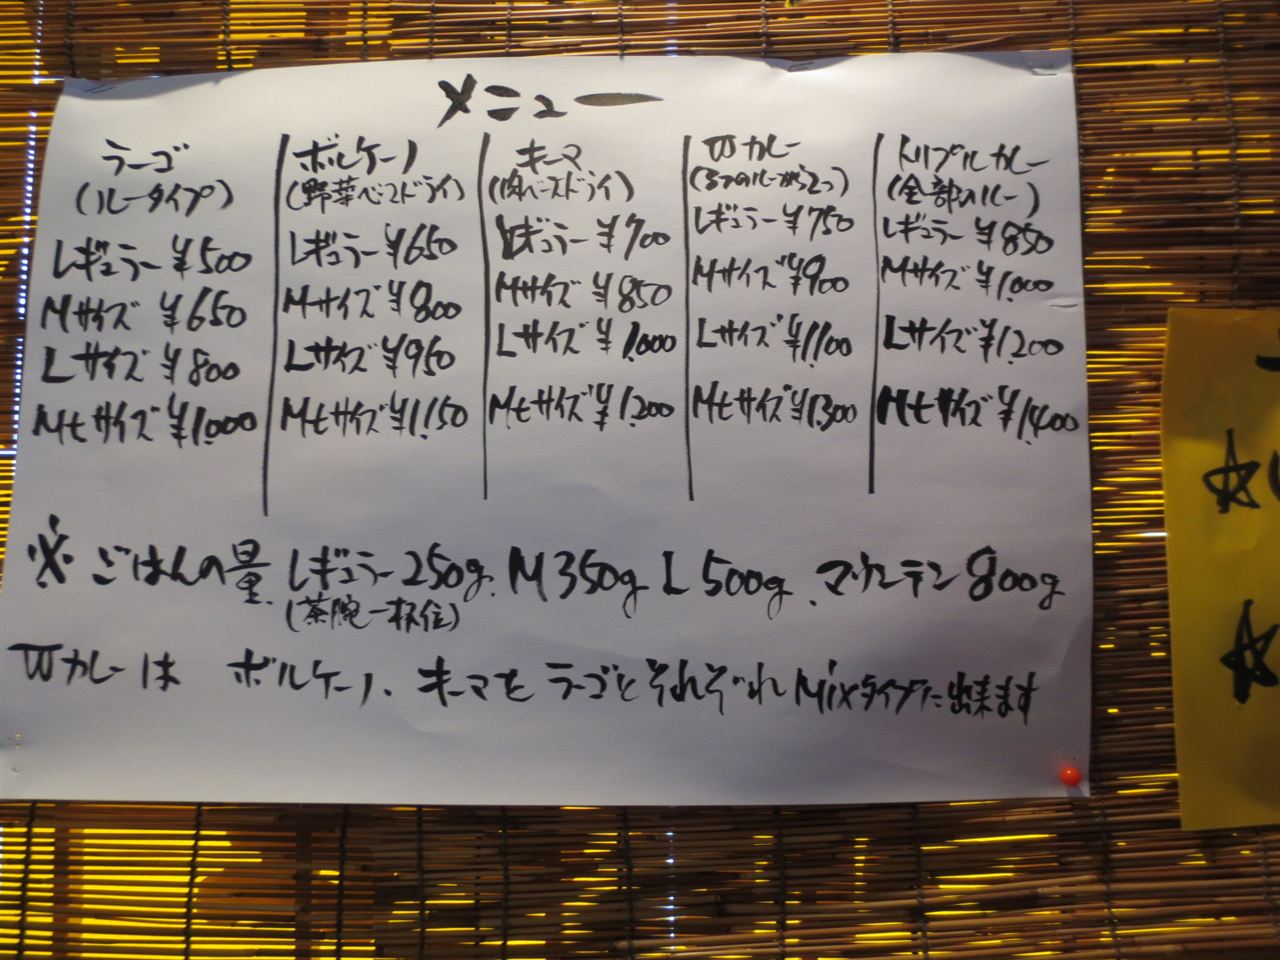 メニュー
ラーゴ
(ルータイプ)
レギュラー ¥500
Mサイズ ¥650
Lサイズ ¥800
Mtサイズ ¥1,000
ボルケーノ
(野菜ベースドライ)
レギュラー ¥650
Mサイズ ¥800
Lサイズ ¥950
Mtサイズ ¥1,150
キーマ
(肉ベースドライ)
レギュラー ¥700
Mサイズ ¥850
Lサイズ ¥1,000
Mtサイズ ¥1,200
Wカレー
(3つのルーから2つ)
レギュラー ¥750
Mサイズ ¥900
Lサイズ ¥1,100
Mtサイズ ¥1,300
トリプルカレー
(全部のルー)
レギュラー ¥850
Mサイズ ¥1,000
Lサイズ ¥1,200
Mtサイズ ¥1,400
※ ごはんの量 レギュラー250g、M350g L500g、マウンテン800g
(茶腕一杯位)
Wカレーは ボルケーノ、キーマと ラーゴとそれぞれMixタイプに出来ます
☆
☆